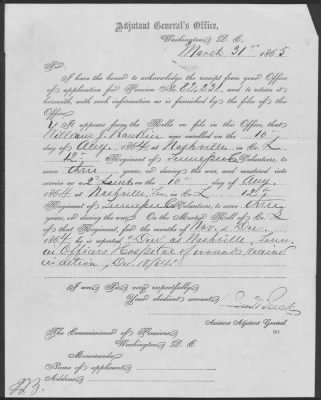 Adjutant General's Office,
Washington, D. C.
March 31st 1865
Sir:
I have the honor to acknowledge the receipt from your Office
of application for Pension No. 82,221, and to return it
herewith, with such information as is furnished by the files of this
Office.
It appears from the Rolls on file in this Office, that
William J. Rankin was enrolled on the 16"
day of Aug. 1864 at Nashville, in Co. L
12" Regiment of Tennessee C. Volunteers, to
serve three years, or during the war, and mustered into
service as a 2" Lieut. on the 16" day of Aug.
1864 at Nashville, Tenn. in Co. L 12"
Regiment of Tennessee C. Volunteers, to serve three
years, or during the war. On the Muster Roll of Co. L
of that Regiment, for the months of Nov. & Dec.
1864 he is reported "Died at Nashville, Tenn.
in Officers Hospital of wounds received
in action, Dec. 18/64."
I am, Sir, very respectfully,
Your obedient servant,
Assistant Adjutant General.
The Commissioner of Pensions,
Washington, D. C.
Memoranda:
Name of applicant,
Address,